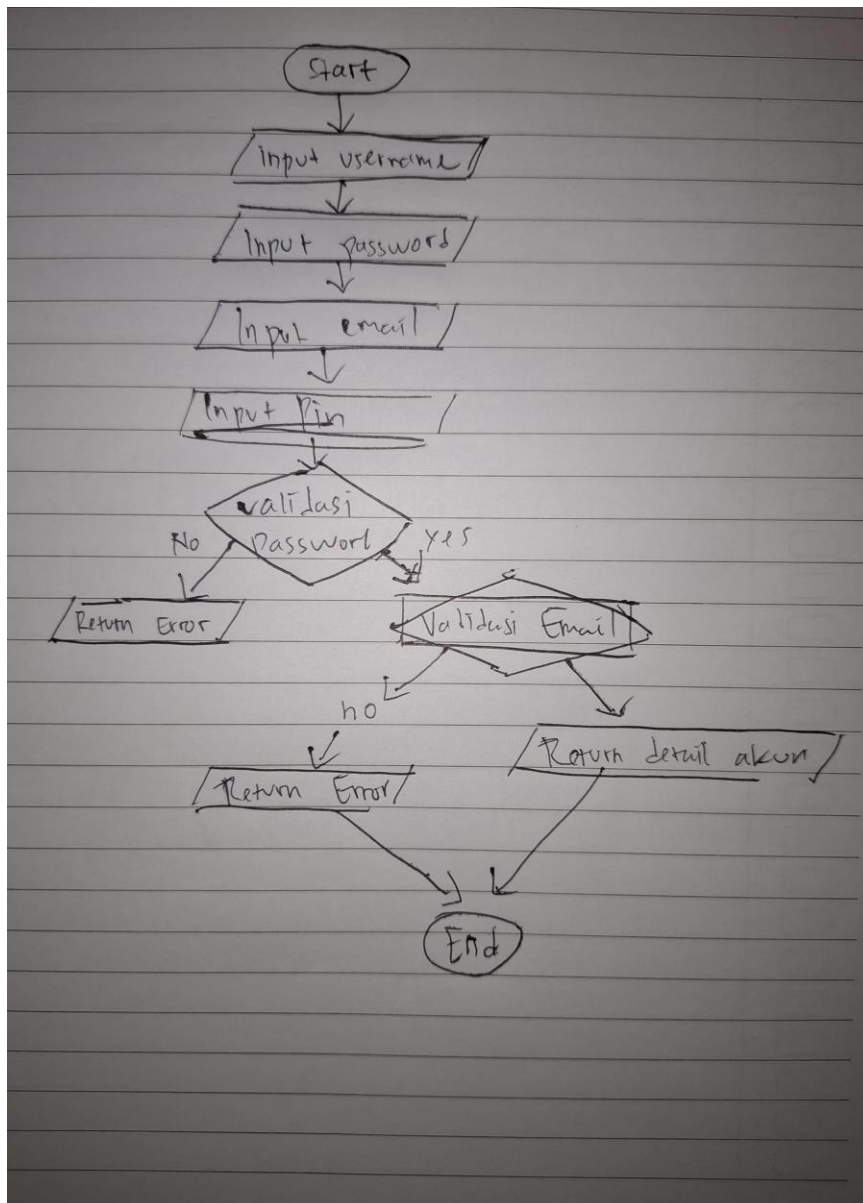 Start
Input username
Input password
Input email
Input Pin
validasi
password
No
yes
Return Error
Validasi Email
no
Return detail akun
Return Error
End